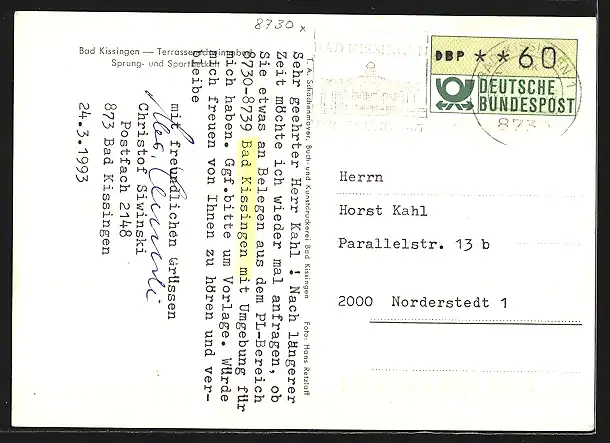 8730 x
Bad Kissingen — Terrassenschwimmbad
Sprung- und Sportbecken
Sehr geehrter Herr Kahl ! Nach längerer
Zeit möchte ich wieder mal anfragen, ob
Sie etwas an Belegen aus dem PL-Bereich
8730-8739 Bad Kissingen mit Umgebung für
mich haben. Ggf.bitte um Vorlage. Würde
mich freuen von Ihnen zu hören und ver-
bleibe
mit freundlichen Grüssen
Christof Siwinski
Postfach 2148
873 Bad Kissingen
24.3.1993
T. A. Schachenmayer, Buch- und Kunstdruckerei Bad Kissingen Foto: Hans Retzlaff
BAD KISSINGEN
DBP **60
DEUTSCHE
BUNDESPOST
873
Herrn
Horst Kahl
Parallelstr. 13 b
2000 Norderstedt 1